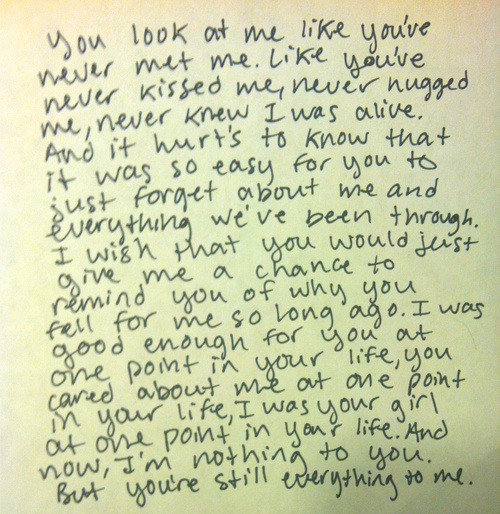 You look at me like you've
never met me. Like you've
never kissed me, never hugged
me, never knew I was alive.
And it hurt's to know that
it was so easy for you to
just forget about me and
everything we've been through.
I wish that you would just
give me a chance to
remind you of why you
fell for me so long ago. I was
good enough for you at
one point in your life, you
cared about me at one point
in your life, I was your girl
at one point in your life. And
now, I'm nothing to you.
But you're still everything to me.